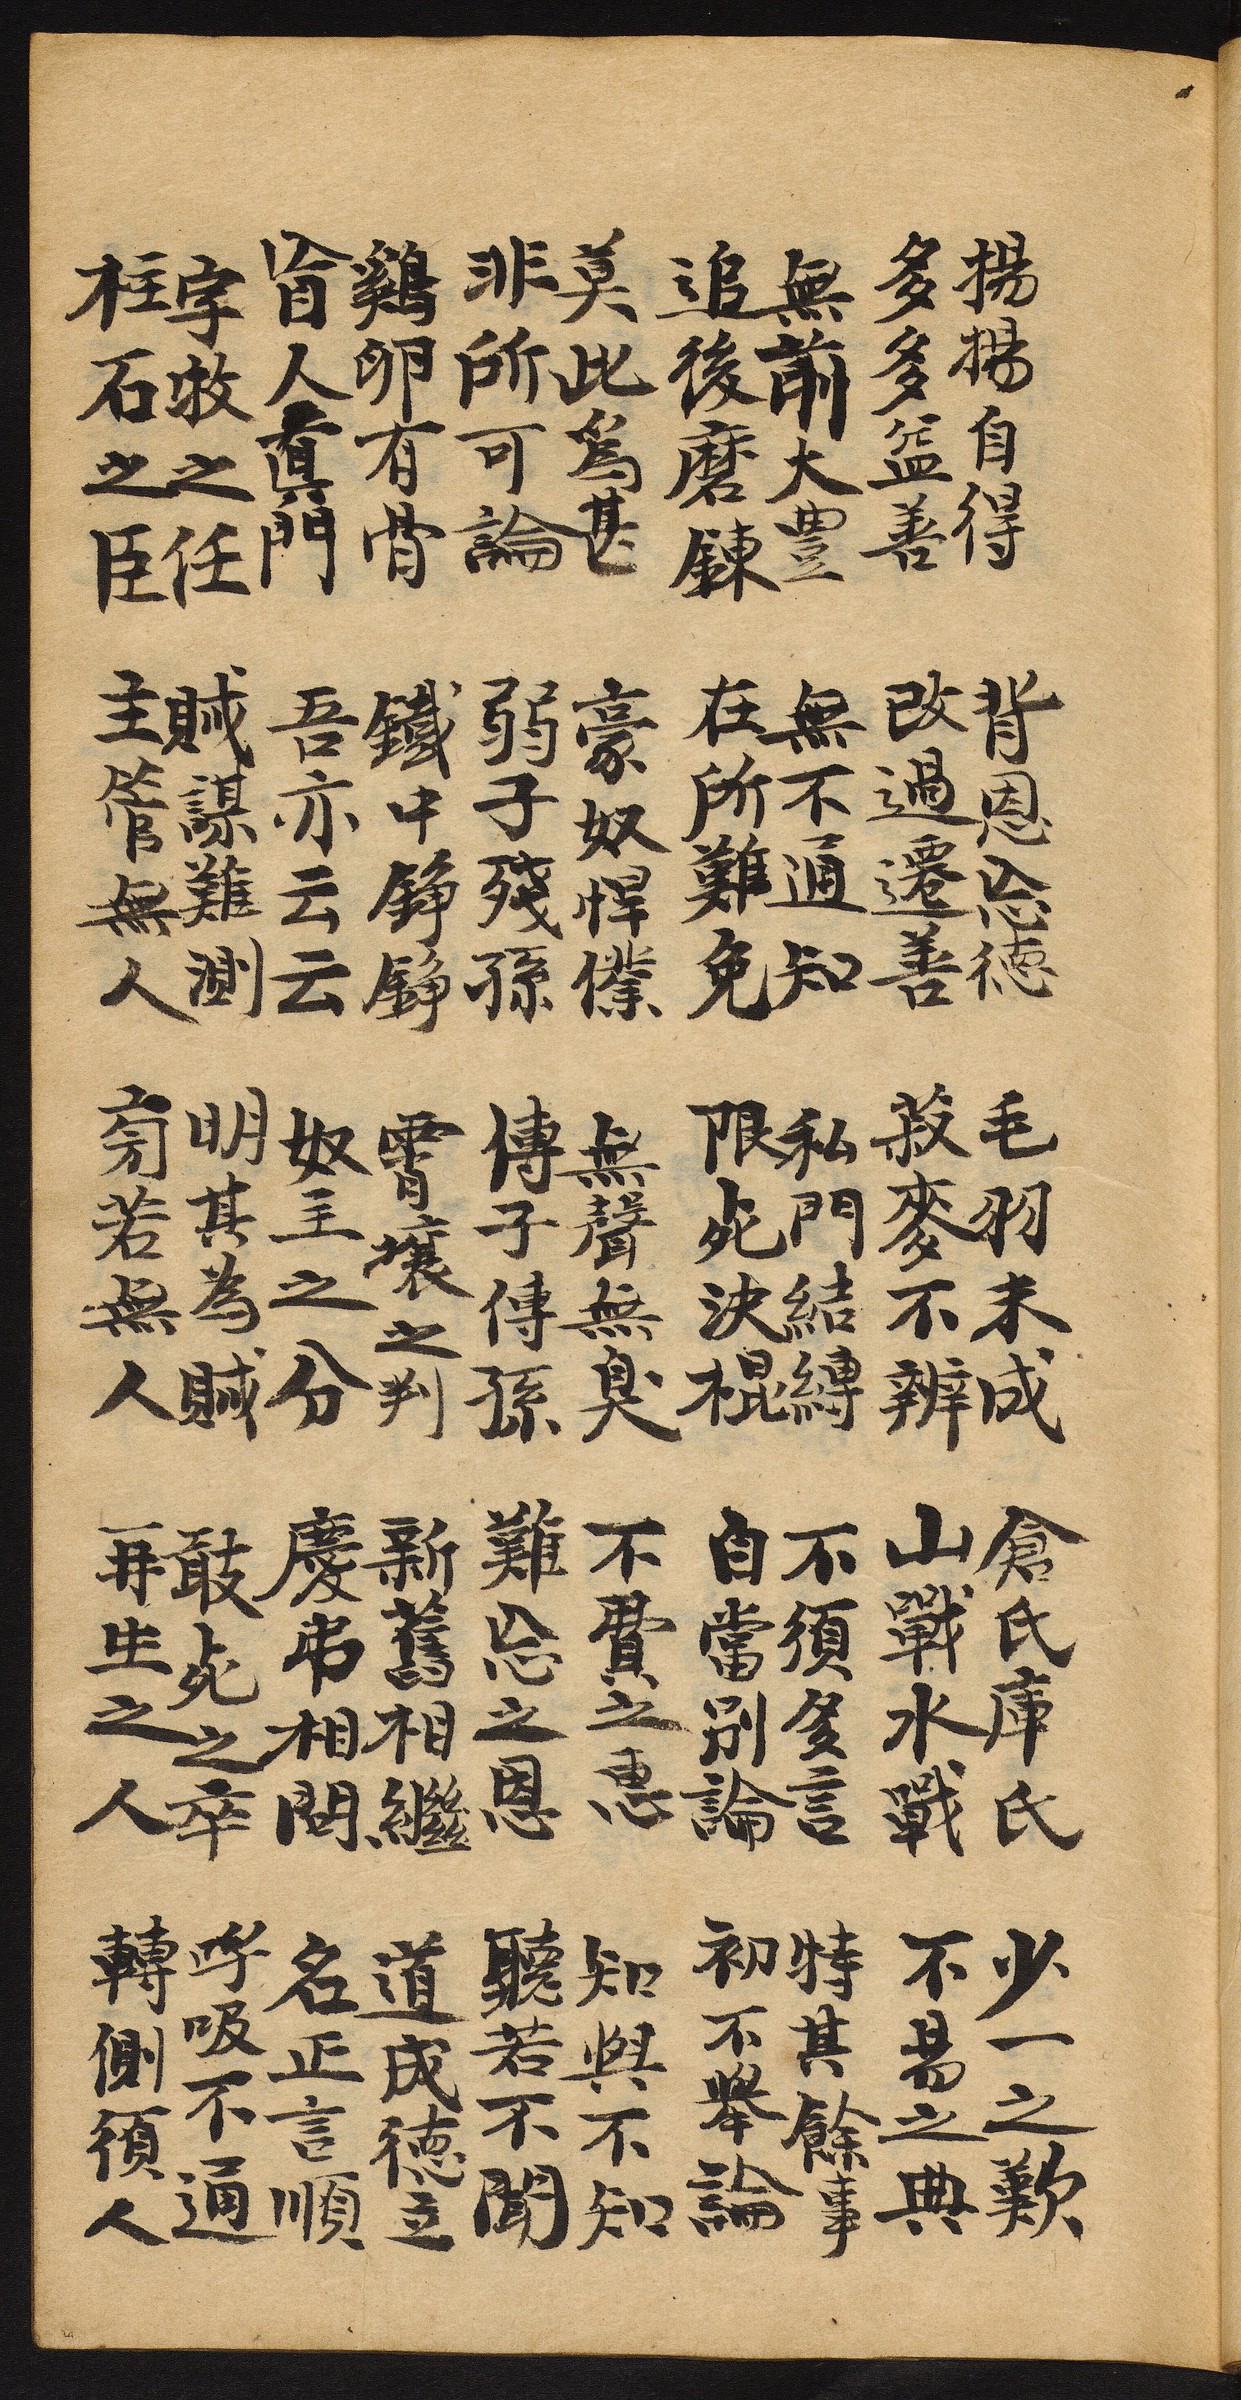 揚揚自得 背恩忘德 毛羽未成 倉氏庫氏 少一之歎
多多益善 改過遷善 菽麥不辨 山戰水戰 不易之典
無前大豊 無不通知 私門結縛 不須多言 特其餘事
追後磨鍊 在所難免 限死決棍 自當別論 初不擧論
莫此爲甚 豪奴悍僕 無聲無臭 不費之惠 知與不知
非所可論 弱子殘孫 傳子傳孫 難忘之恩 聽若不聞
鷄卵有骨 鐵中錚錚 霄壤之判 新舊相繼 道成德立
盲人直門 吾亦云云 奴主之分 慶弔相問 名正言順
字牧之任 賊謀難測 明其為賊 敢死之卒 呼吸不通
柱石之臣 主管無人 旁若無人 再生之人 轉側須人